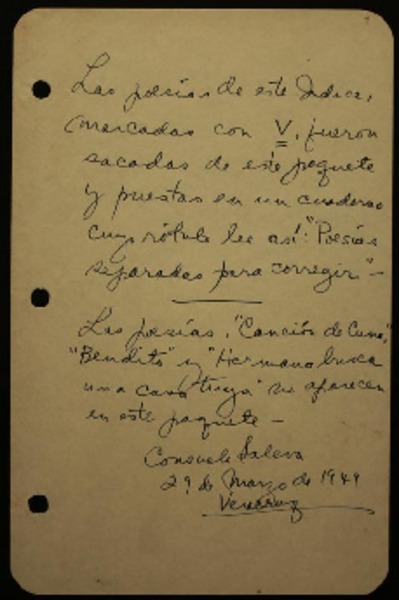 Las poesías de este Indice,
marcadas con V, fueron
sacadas de este paquete
y puestas en un cuaderno
cuyo rótulo lee así: "Poesías
separadas para corregir" -
Las poesías, "Canción de Cuna",
"Bendito" y "Hermano busca
una casa tuya" no aparecen
en este paquete -
Consuelo Saleva
29 de Marzo de 1949
Veracruz